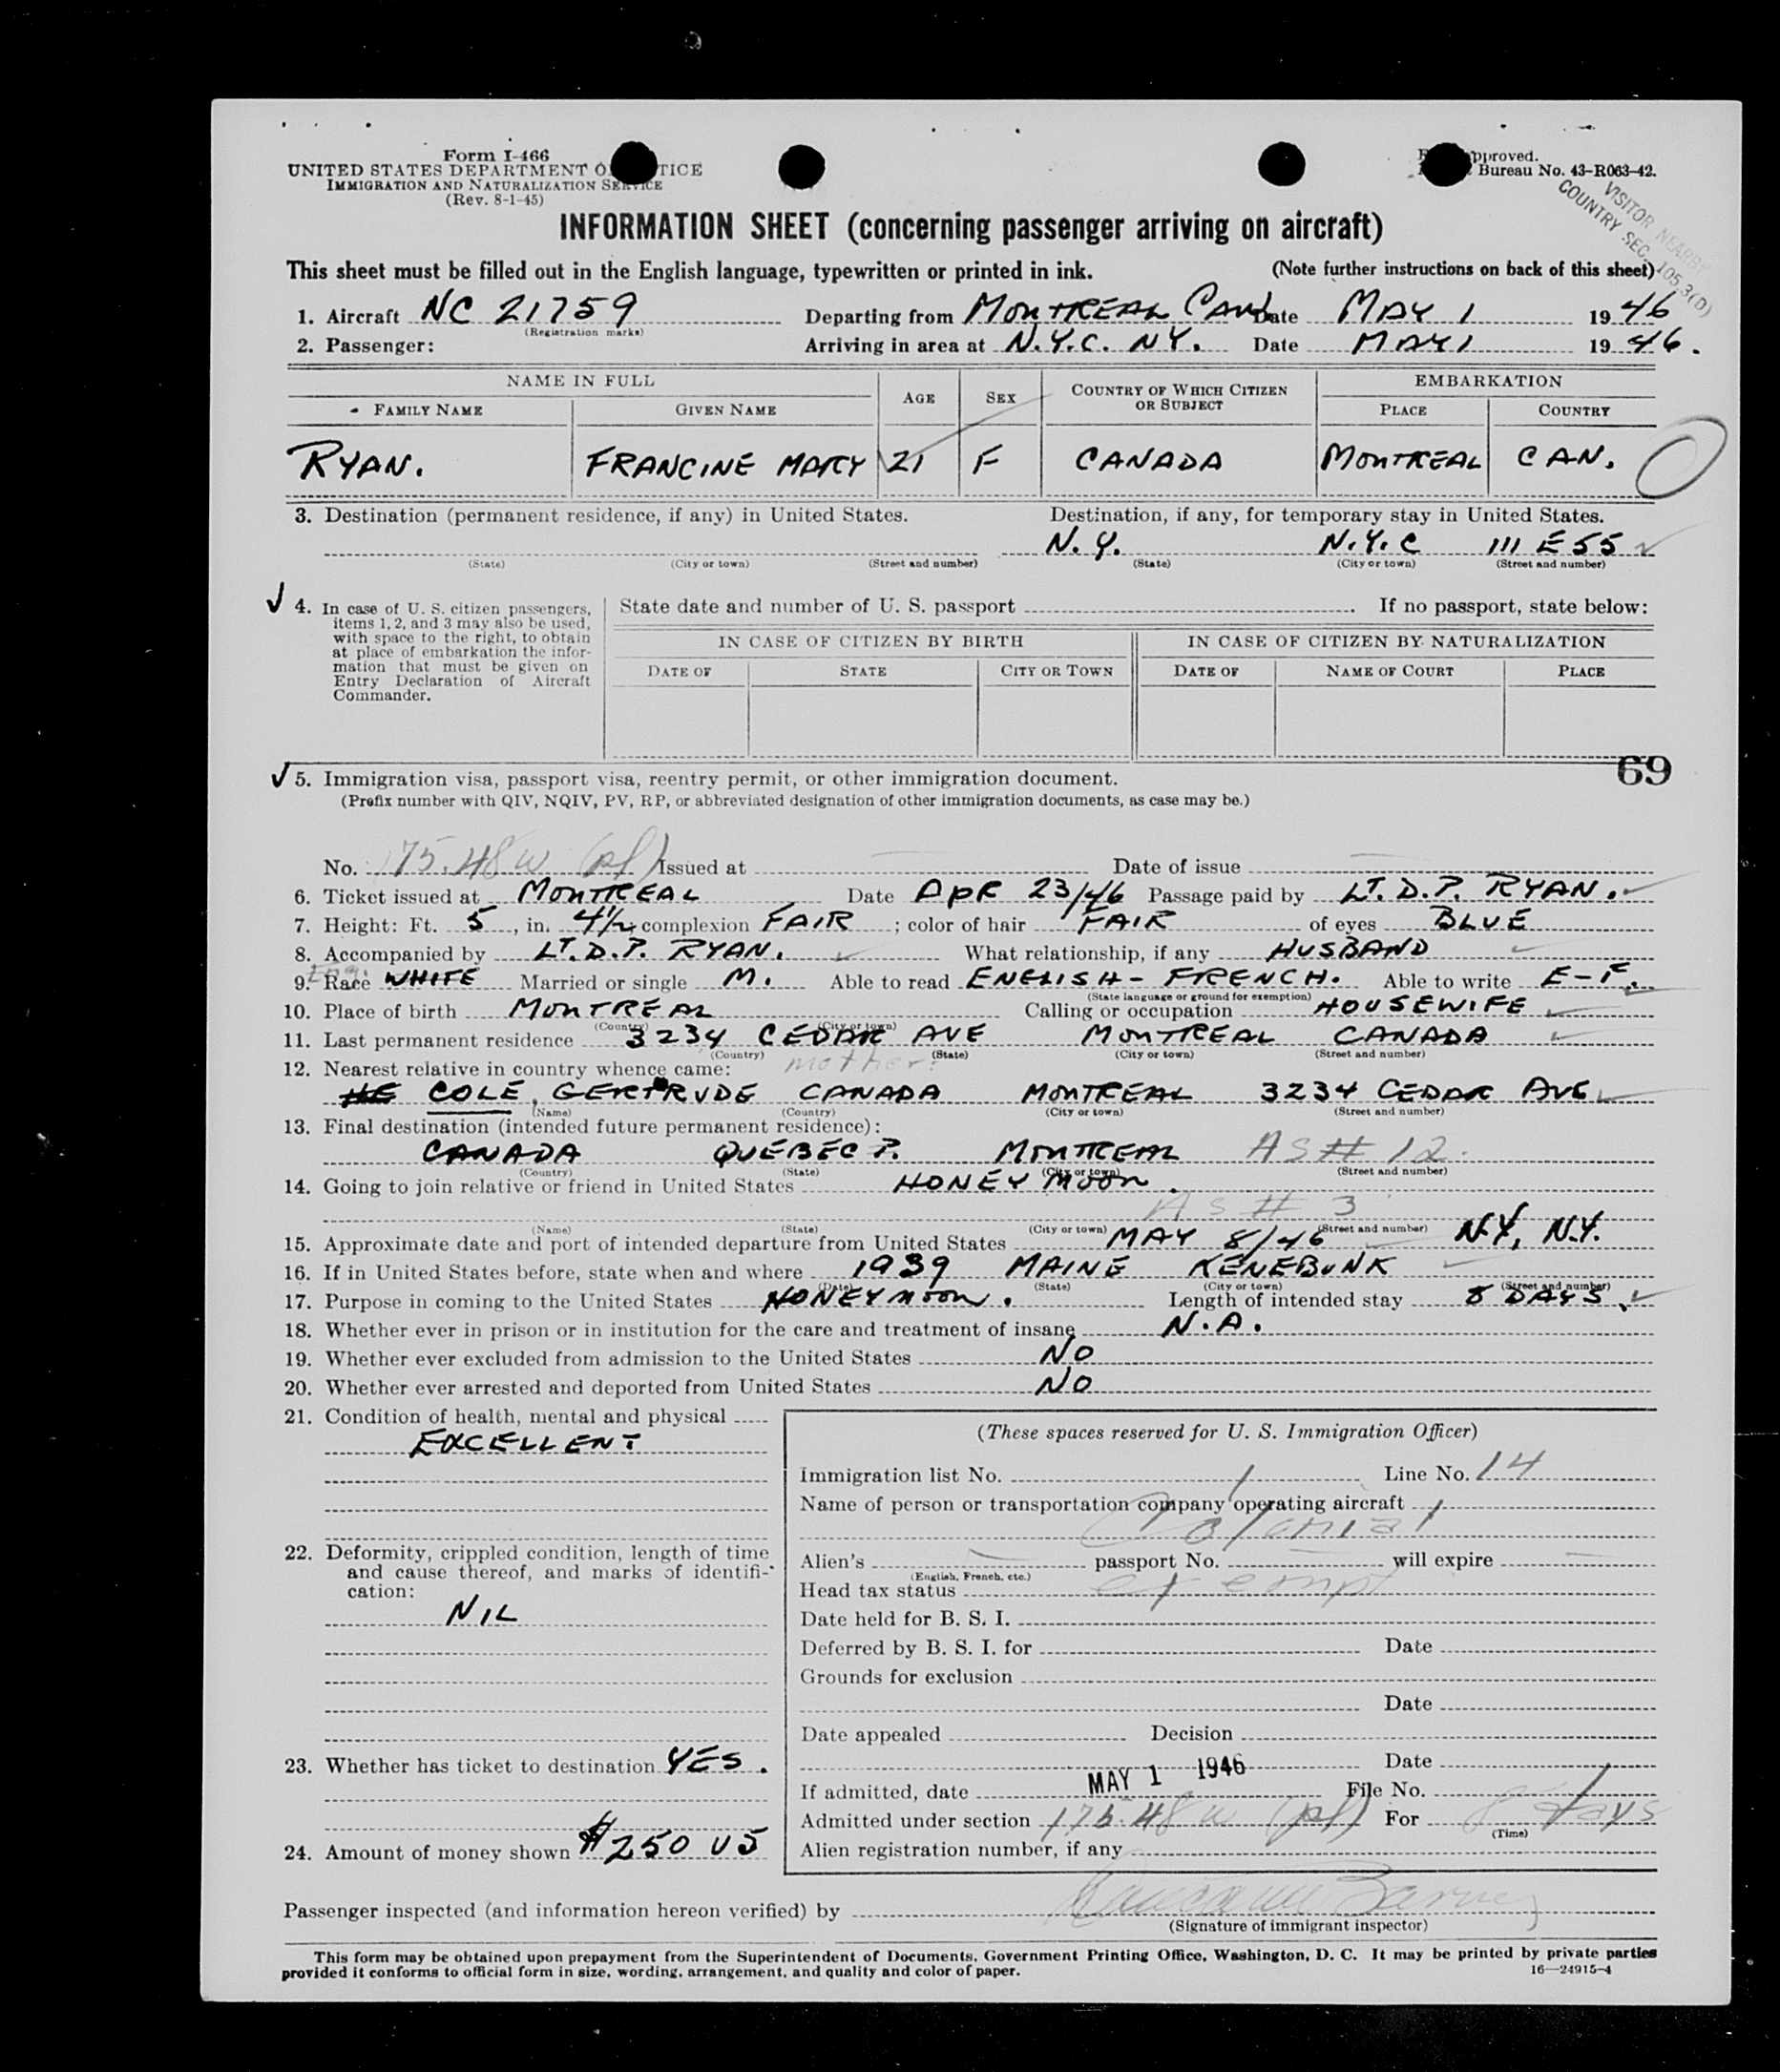 Form I-466
UNITED STATES DEPARTMENT O TICE
IMMIGRATION AND NATURALIZATION SERVICE
(Rev. 8-1-45)
pproved.
Bureau No. 43-R063-42.
VISITOR NEARBY
COUNTRY SEC. 105.3(D)
INFORMATION SHEET (concerning passenger arriving on aircraft)
This sheet must be filled out in the English language, typewritten or printed in ink. (Note further instructions on back of this sheet)
1. Aircraft NC 21759 Departing from MONTREAL CAN. Date MAY 1 1946
(Registration marks)
2. Passenger: Arriving in area at N.Y.C. NY. Date MAY 1 1946.
NAME IN FULL AGE SEX COUNTRY OF WHICH CITIZEN OR SUBJECT EMBARKATION
FAMILY NAME GIVEN NAME PLACE COUNTRY
RYAN. FRANCINE MARY 21 F CANADA MONTREAL CAN.
3. Destination (permanent residence, if any) in United States. Destination, if any, for temporary stay in United States.
N.Y. N.Y.C 111 E 55
(State) (City or town) (Street and number) (State) (City or town) (Street and number)
4. In case of U. S. citizen passengers, items 1, 2, and 3 may also be used, with space to the right, to obtain at place of embarkation the information that must be given on Entry Declaration of Aircraft Commander.
State date and number of U. S. passport . If no passport, state below:
IN CASE OF CITIZEN BY BIRTH IN CASE OF CITIZEN BY NATURALIZATION
DATE OF STATE CITY OR TOWN DATE OF NAME OF COURT PLACE
69
5. Immigration visa, passport visa, reentry permit, or other immigration document.
(Prefix number with QIV, NQIV, PV, RP, or abbreviated designation of other immigration documents, as case may be.)
No. 175.48w (pf) Issued at Date of issue
6. Ticket issued at MONTREAL Date APR 23/46 Passage paid by LT. D.P. RYAN.
7. Height: Ft. 5, in. 4½; complexion FAIR; color of hair FAIR of eyes BLUE
8. Accompanied by LT. D.P. RYAN. What relationship, if any HUSBAND
9. Race Eng. WHITE Married or single M. Able to read ENGLISH - FRENCH. Able to write E-F.
(State language or ground for exemption)
10. Place of birth MONTREAL Calling or occupation HOUSEWIFE
(Country) (City or town)
11. Last permanent residence 3234 CEDAR AVE MONTREAL CANADA
(Country) (State) (City or town) (Street and number)
12. Nearest relative in country whence came: mother:
COLE, GERTRUDE CANADA MONTREAL 3234 CEDAR AVE
(Name) (Country) (City or town) (Street and number)
13. Final destination (intended future permanent residence):
CANADA QUEBEC P. MONTREAL AS # 12.
(Country) (State) (City or town) (Street and number)
14. Going to join relative or friend in United States HONEYMOON.
AS # 3
(Name) (State) (City or town) (Street and number)
15. Approximate date and port of intended departure from United States MAY 8/46 N.Y, N.Y.
16. If in United States before, state when and where 1939 MAINE KENEBUNK
(Date) (State) (City or town) (Street and number)
17. Purpose in coming to the United States HONEYMOON. Length of intended stay 8 DAYS.
18. Whether ever in prison or in institution for the care and treatment of insane N.A.
19. Whether ever excluded from admission to the United States NO
20. Whether ever arrested and deported from United States NO
21. Condition of health, mental and physical
EXCELLENT
22. Deformity, crippled condition, length of time and cause thereof, and marks of identification:
NIL
23. Whether has ticket to destination YES.
24. Amount of money shown $250 US
(These spaces reserved for U. S. Immigration Officer)
Immigration list No. 1 Line No. 14
Name of person or transportation company operating aircraft
Colonial
Alien's passport No. will expire
(English, French, etc.)
Head tax status exempt
Date held for B. S. I.
Deferred by B. S. I. for Date
Grounds for exclusion
Date
Date appealed Decision
Date
If admitted, date MAY 1 1946 File No.
Admitted under section 175.48w (pf) For 8 days
(Time)
Alien registration number, if any
Passenger inspected (and information hereon verified) by
(Signature of immigrant inspector)
This form may be obtained upon prepayment from the Superintendent of Documents, Government Printing Office, Washington, D. C. It may be printed by private parties
provided it conforms to official form in size, wording, arrangement, and quality and color of paper.
16—24915-4